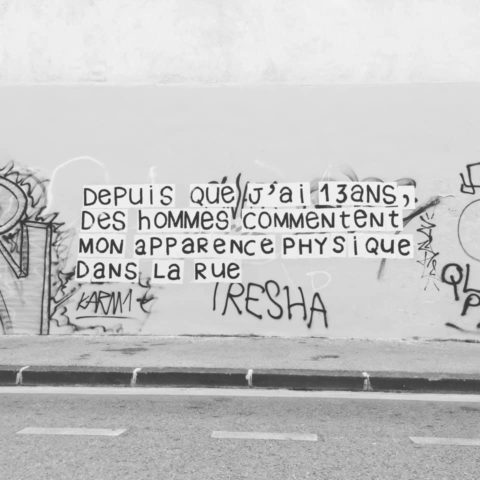 DePUiS QUe J'ai 13aNS,
DeS hOMMeS COMMeNteNt
MON aPPaReNCe PHYSiQUe
DaNS La RUe
KARIM
TRESHA
QL
P